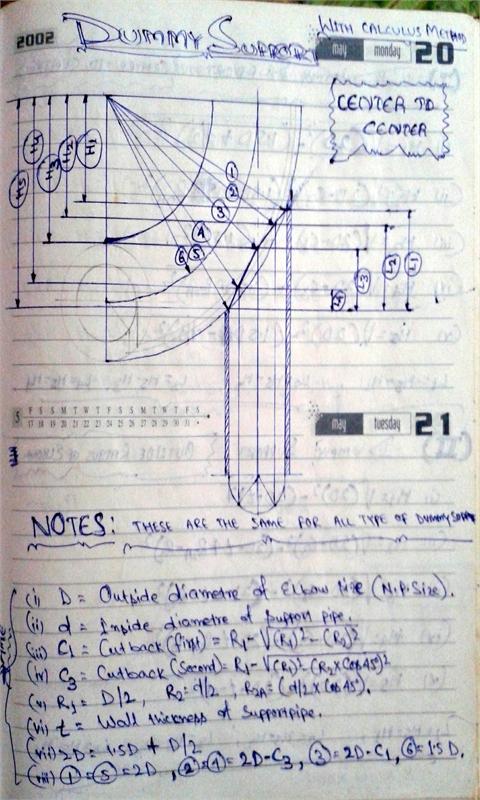 2002
DUMMY SUPPORT
WITH CALCULUS METHOD
may monday 20
CENTER TO
CENTER
H5 H4 H3 H2 H1
1
2
3
4
6 5
L4 L3 L2 L1
5 F S S M T W T F S S M T W T F
17 18 19 20 21 22 23 24 25 26 27 28 29 30 31
may tuesday 21
NOTES: THESE ARE THE SAME FOR ALL TYPE OF DUMMY SUPPORT
(i) D = Outside diametre of Elbow Pipe (N.P. Size).
(ii) d = Inside diametre of support pipe.
(iii) C1 = Cutback (first) = R1 - √(R1)² - (R2)²
(iv) C3 = Cutback (second) = R1 - √(R1)² - (R2 x Cos 45°)²
(v) R1 = D/2, R2 = d/2, R2A = (d/2 x Cos 45°).
(vi) t = Wall thickness of Support pipe.
(vii) 2D = 1.5D + D/2
(viii) 1 = 5 = 2D, 2 = 4 = 2D - C3, 3 = 2D - C1, 6 = 1.5 D.